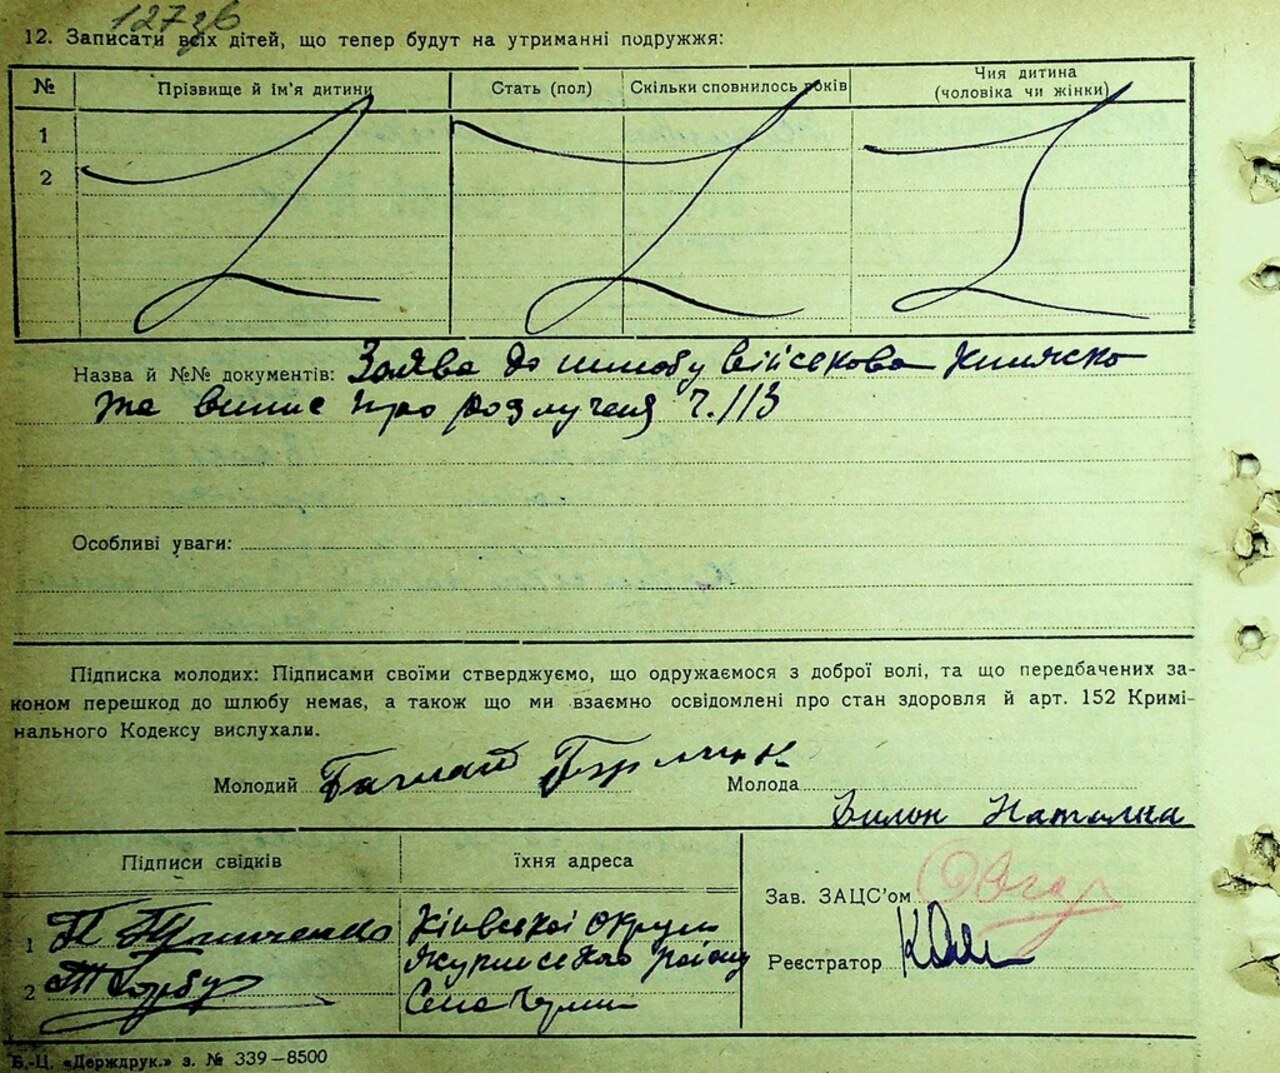 127зв
12. Записати всіх дітей, що тепер будут на утриманні подружжя:
№ Прізвище й ім'я дитини Стать (пол) Скільки сповнилось років Чия дитина (чоловіка чи жінки)
1
2
Назва й №№ документів: Заява до шлюбу військова книжка
та випис про розлученя ч. 113
Особливі уваги:
Підписка молодих: Підписами своїми стверджуємо, що одружаємося з доброї волі, та що передбачених за-
коном перешкод до шлюбу немає, а також що ми взаємно освідомлені про стан здоровля й арт. 152 Кримі-
нального Кодексу вислухали.
Молодий Молода
Наталка
Підписи свідків їхня адреса
Зав. ЗАЦС'ом
1 Київської округи
Реєстратор
району
2 Село
Б.-Ц. «Держдрук.» з. № 339—8500